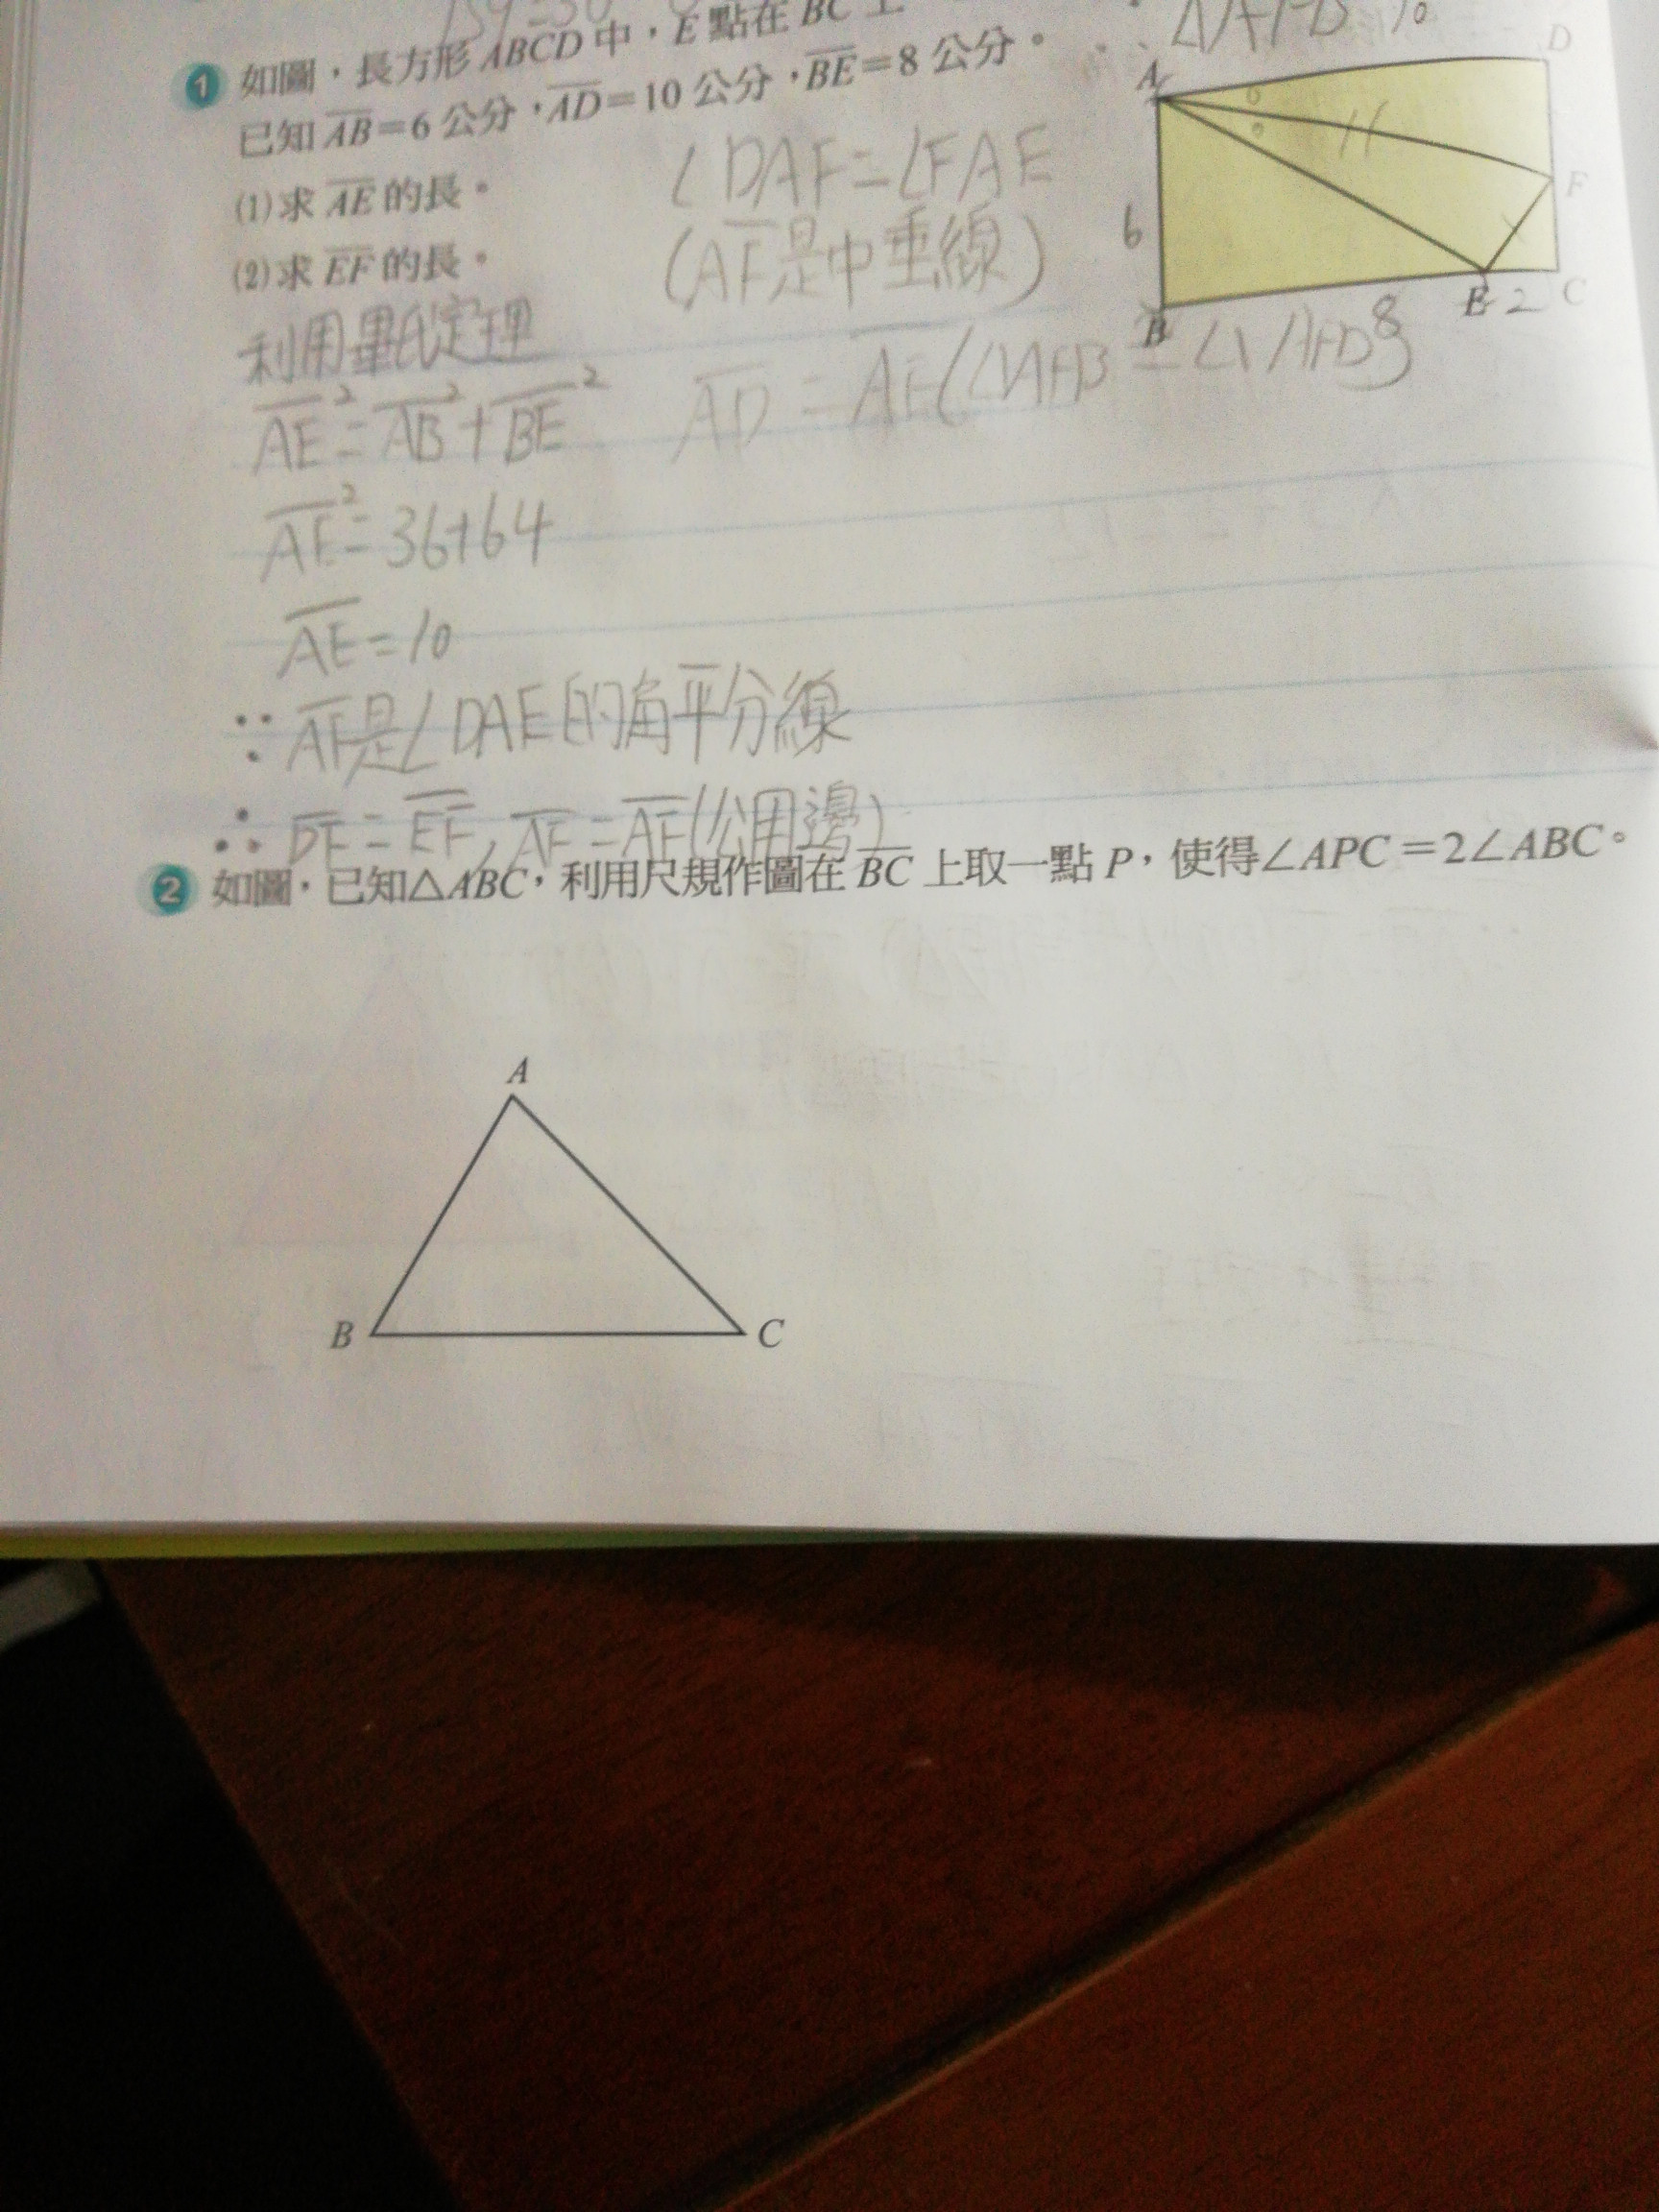 1 如圖，長方形ABCD中，E點在BC上
已知AB=6公分，AD=10公分，BE=8公分。
(1)求AE的長。
(2)求EF的長。
∠DAF=∠FAE
(AF是中垂線)
A
D
F
6
B
8
E
2
C
利用畢氏定理
AE²=AB²+BE²
AE²=36+64
AE=10
∵AF是∠DAE的角平分線
∴DF=EF,AF=AF(公用邊)
2 如圖，已知△ABC，利用尺規作圖在BC上取一點P，使得∠APC=2∠ABC。
A
B
C